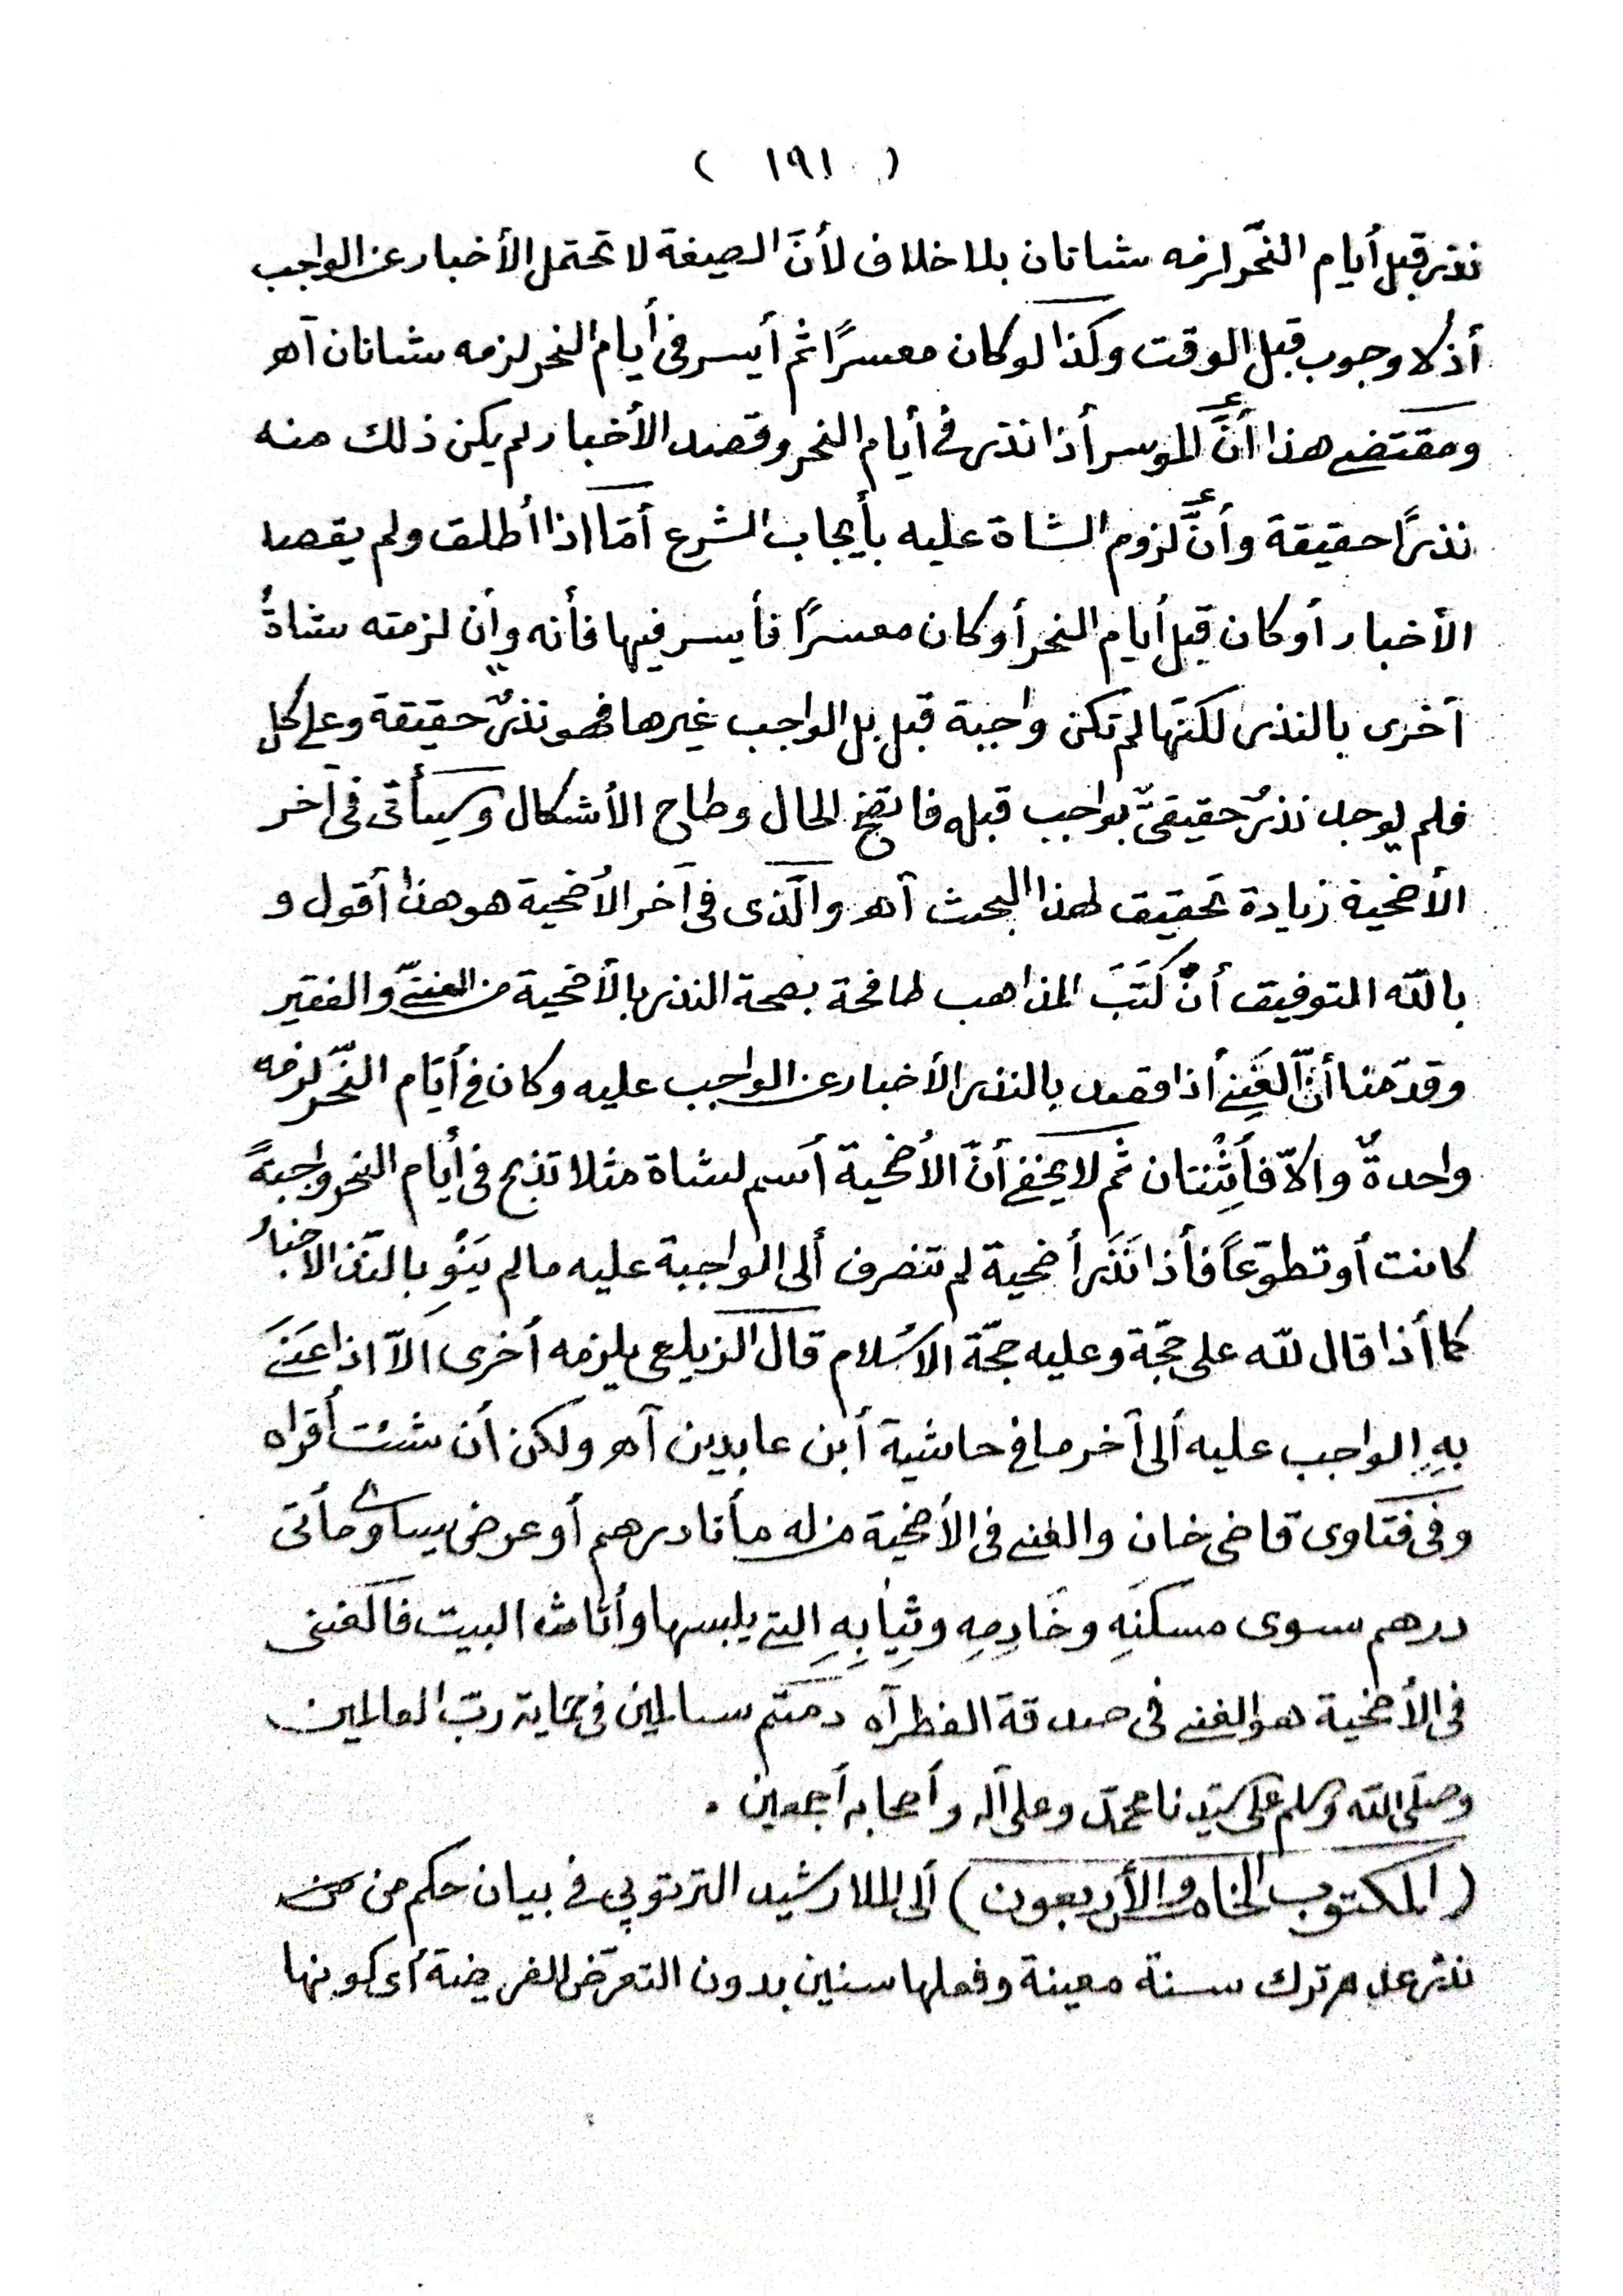 ( ١٩١ )
نذر قبل أيام النّحر لزمه شاتان بلا خلاف لأنَّ الصيغة لا تحتمل الأخبار عن الواجب
أذ لا وجوب قبل الوقت وكذا لو كان معسرًا ثم أيسر فى أيام النحر لزمه شاتان آهـ
ومقتضى هذا أنَّ الموسر أذا نذر فى أيام النحر وقصد الأخبار لم يكن ذلك منه
نذرًا حقيقة وأنَّ لزوم الشاة عليه بأيجاب الشرع أمّا اذا أطلق ولم يقصد
الأخبار أو كان قبل أيام النحر أو كان معسرًا فأيسر فيها فأنه وأن لزمته شاةٌ
أخرى بالنذر لكنّها لم تكن واجبة قبل بل الواجب غيرها فهو نذرٌ حقيقة وعلى كل
فلم يوجد نذرٌ حقيقىٌّ بواجب قبله فاتضح الحال وطاح الأشكال وسيأتى فى آخر
الأضحية زيادة تحقيق لهذا البحث آهـ والّذى فى آخر الأضحية هو هذا أقول و
بالله التوفيق أنَّ كتب المذاهب طافحة بصحة النذر بالأضحية من الغنىّ والفقير
وقدّمنا أنَّ الغنِىَّ أذا قصد بالنذر الأخبار عن الواجب عليه وكان فى أيّام النّحر لزمه
واحدةٌ والاّ فأثْنتان ثم لا يخفى أنَّ الأضحية أسم لشاة مثلا تذبح فى أيام النحر واجبةً
كانت أو تطوّعاً فأذا نَذَر أضحية لم تنصرف ألى الواجبة عليه ما لم يَنْوِ بالنّذر الأخبارُ
كما أذا قال لله على حجّة وعليه حجّة الاسلام قال الزيلعى يلزمه أخرى الاّ اذا عَنَىَ
بهِ الواجب عليه ألى آخر ما فى حاشية أبن عابدين آهـ ولكن أن شئت أقراه
وفى فتاوى قاضى خان والغنى فى الأضحية من له مأتا درهم أو عرض يساوى مأتى
درهم سوى مسكنَهِ وخَادِمِهِ وثِيَابِهِ التى يلبسها وأثاث البيت فالغنى
فى الأضحية هو الغنى فى صدقة الفطر آه دمتم سالمين فى حماية ربّ العالمين
وصلّى الله وسلم على سيّدنا محمّد وعلى آله وأصحابه أجمعين .
(المكتوب الخامس والأربعون) ألى الملا رشيد الترتوپى فى بيان حكم من
نذر عدم ترك سنة معينة وفعلها سنين بدون التعرّض الفريضة أى كونها